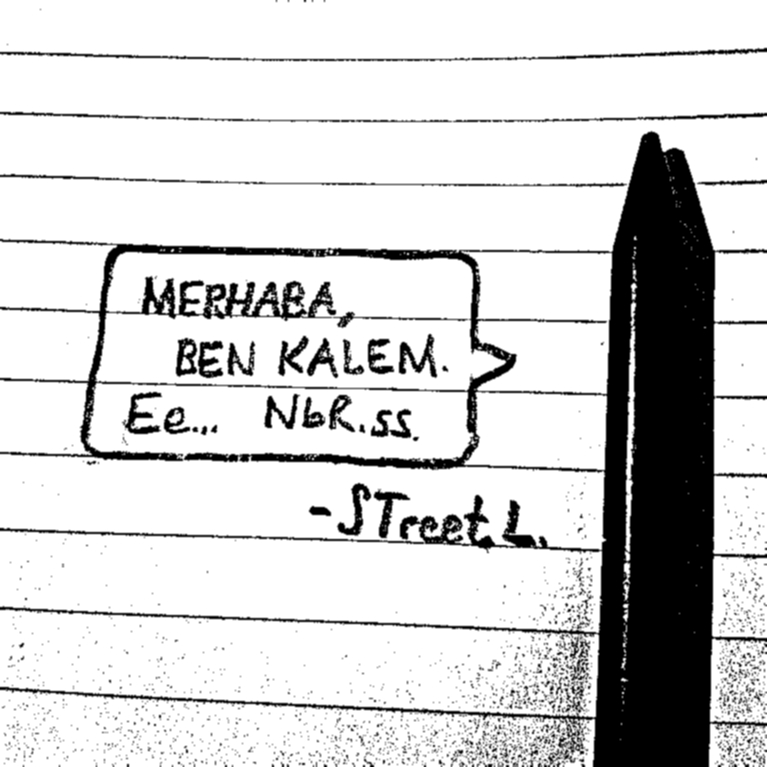 MERHABA,
BEN KALEM.
Ee... NbR.ss.
-STreet.L.